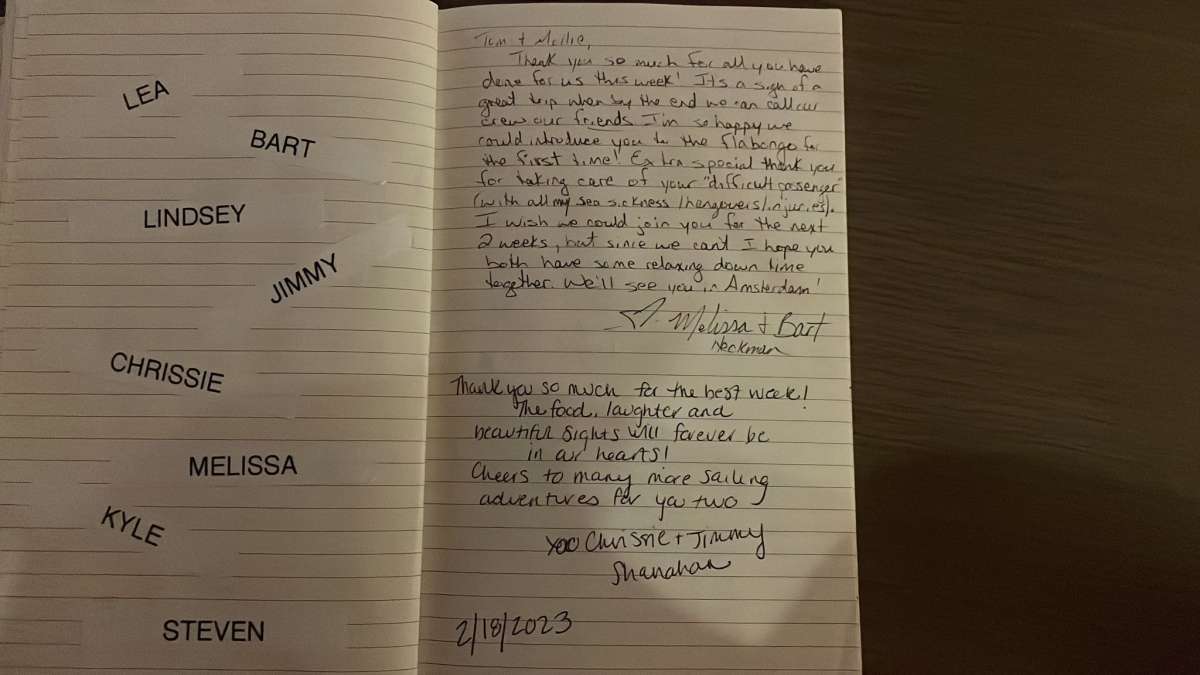 LEA
BART
LINDSEY
JIMMY
CHRISSIE
MELISSA
KYLE
STEVEN
Tom + Mollie,
Thank you so much for all you have
done for us this week! Its a sign of a
great trip when by the end we can call our
crew our friends. I'm so happy we
could introduce you to the flabongo for
the first time! Extra special thank you
for taking care of your "difficult passenger"
(with all my sea sickness/hangovers/injuries).
I wish we could join you for the next
2 weeks, but since we can't I hope you
both have some relaxing down time
together. We'll see you in Amsterdam!
Melissa & Bart
Heckman
Thank you so much for the best week!
The food, laughter and
beautiful sights will forever be
in our hearts!
Cheers to many more sailing
adventures for you two
xoo Chrissie + Jimmy
Shanahan
2/18/2023